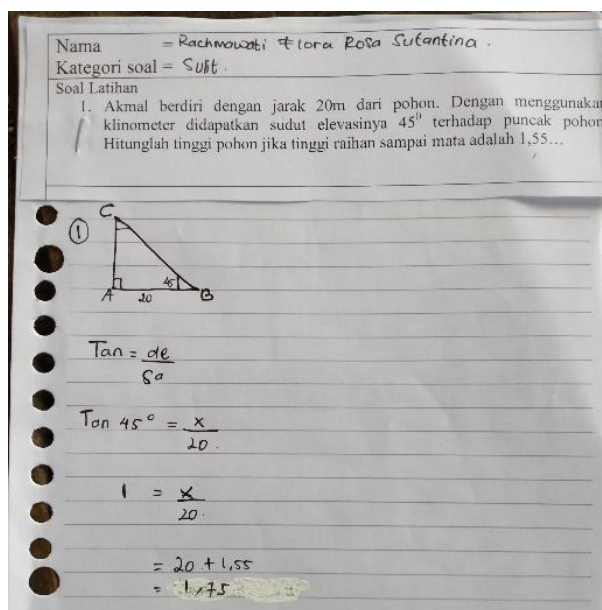 Nama = Rachmawati Flora Rosa Sutantina.
Kategori soal = Sulit.
Soal Latihan
1. Akmal berdiri dengan jarak 20m dari pohon. Dengan menggunakan
klinometer didapatkan sudut elevasinya 45⁰ terhadap puncak pohon
Hitunglah tinggi pohon jika tinggi raihan sampai mata adalah 1,55…
①
C
45
A 20 B
Tan = de
sa
Tan 45° = x
20.
1 = x
20.
= 20 + 1,55
= 1,75